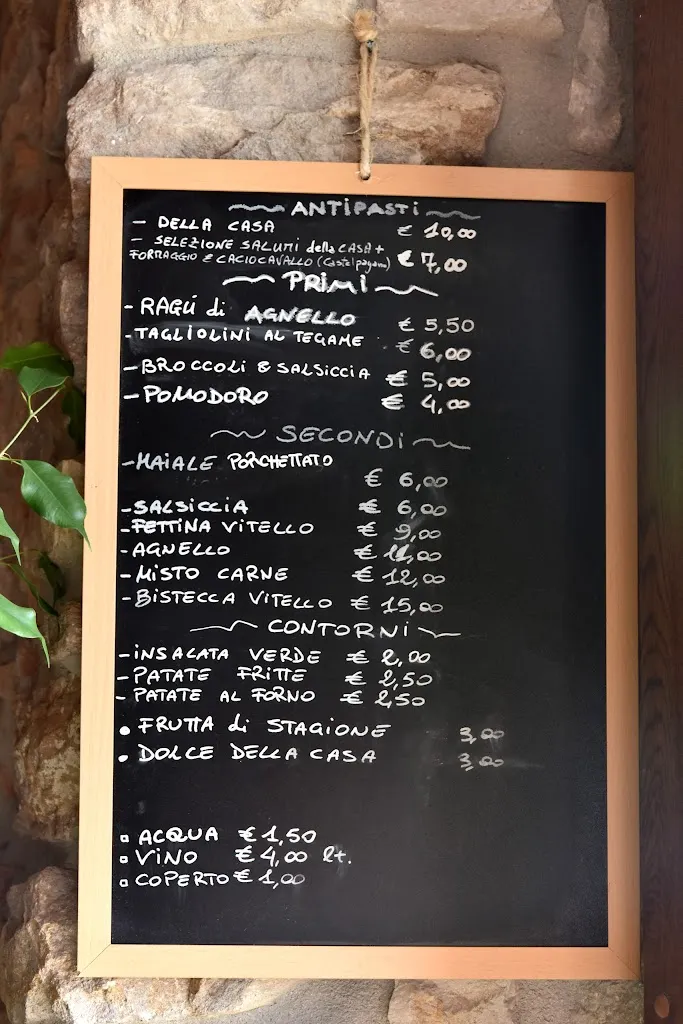 ANTIPASTI
- DELLA CASA € 10,00
- SELEZIONE SALUMI della CASA +
FORMAGGIO E CACIOCAVALLO (Castelpagano) € 7,00
PRIMI
- RAGÚ di AGNELLO € 5,50
- TAGLIOLINI AL TEGAME € 6,00
- BROCCOLI & SALSICCIA € 5,00
- POMODORO € 4,00
SECONDI
- MAIALE PORCHETTATO
€ 6,00
- SALSICCIA € 6,00
- FETTINA VITELLO € 9,00
- AGNELLO € 11,00
- MISTO CARNE € 12,00
- BISTECCA VITELLO € 15,00
CONTORNI
- INSALATA VERDE € 2,00
- PATATE FRITTE € 2,50
- PATATE AL FORNO € 2,50
• FRUTTA di STAGIONE 3,00
• DOLCE DELLA CASA 3,00
▫ ACQUA € 1,50
▫ VINO € 4,00 lt.
▫ COPERTO € 1,00